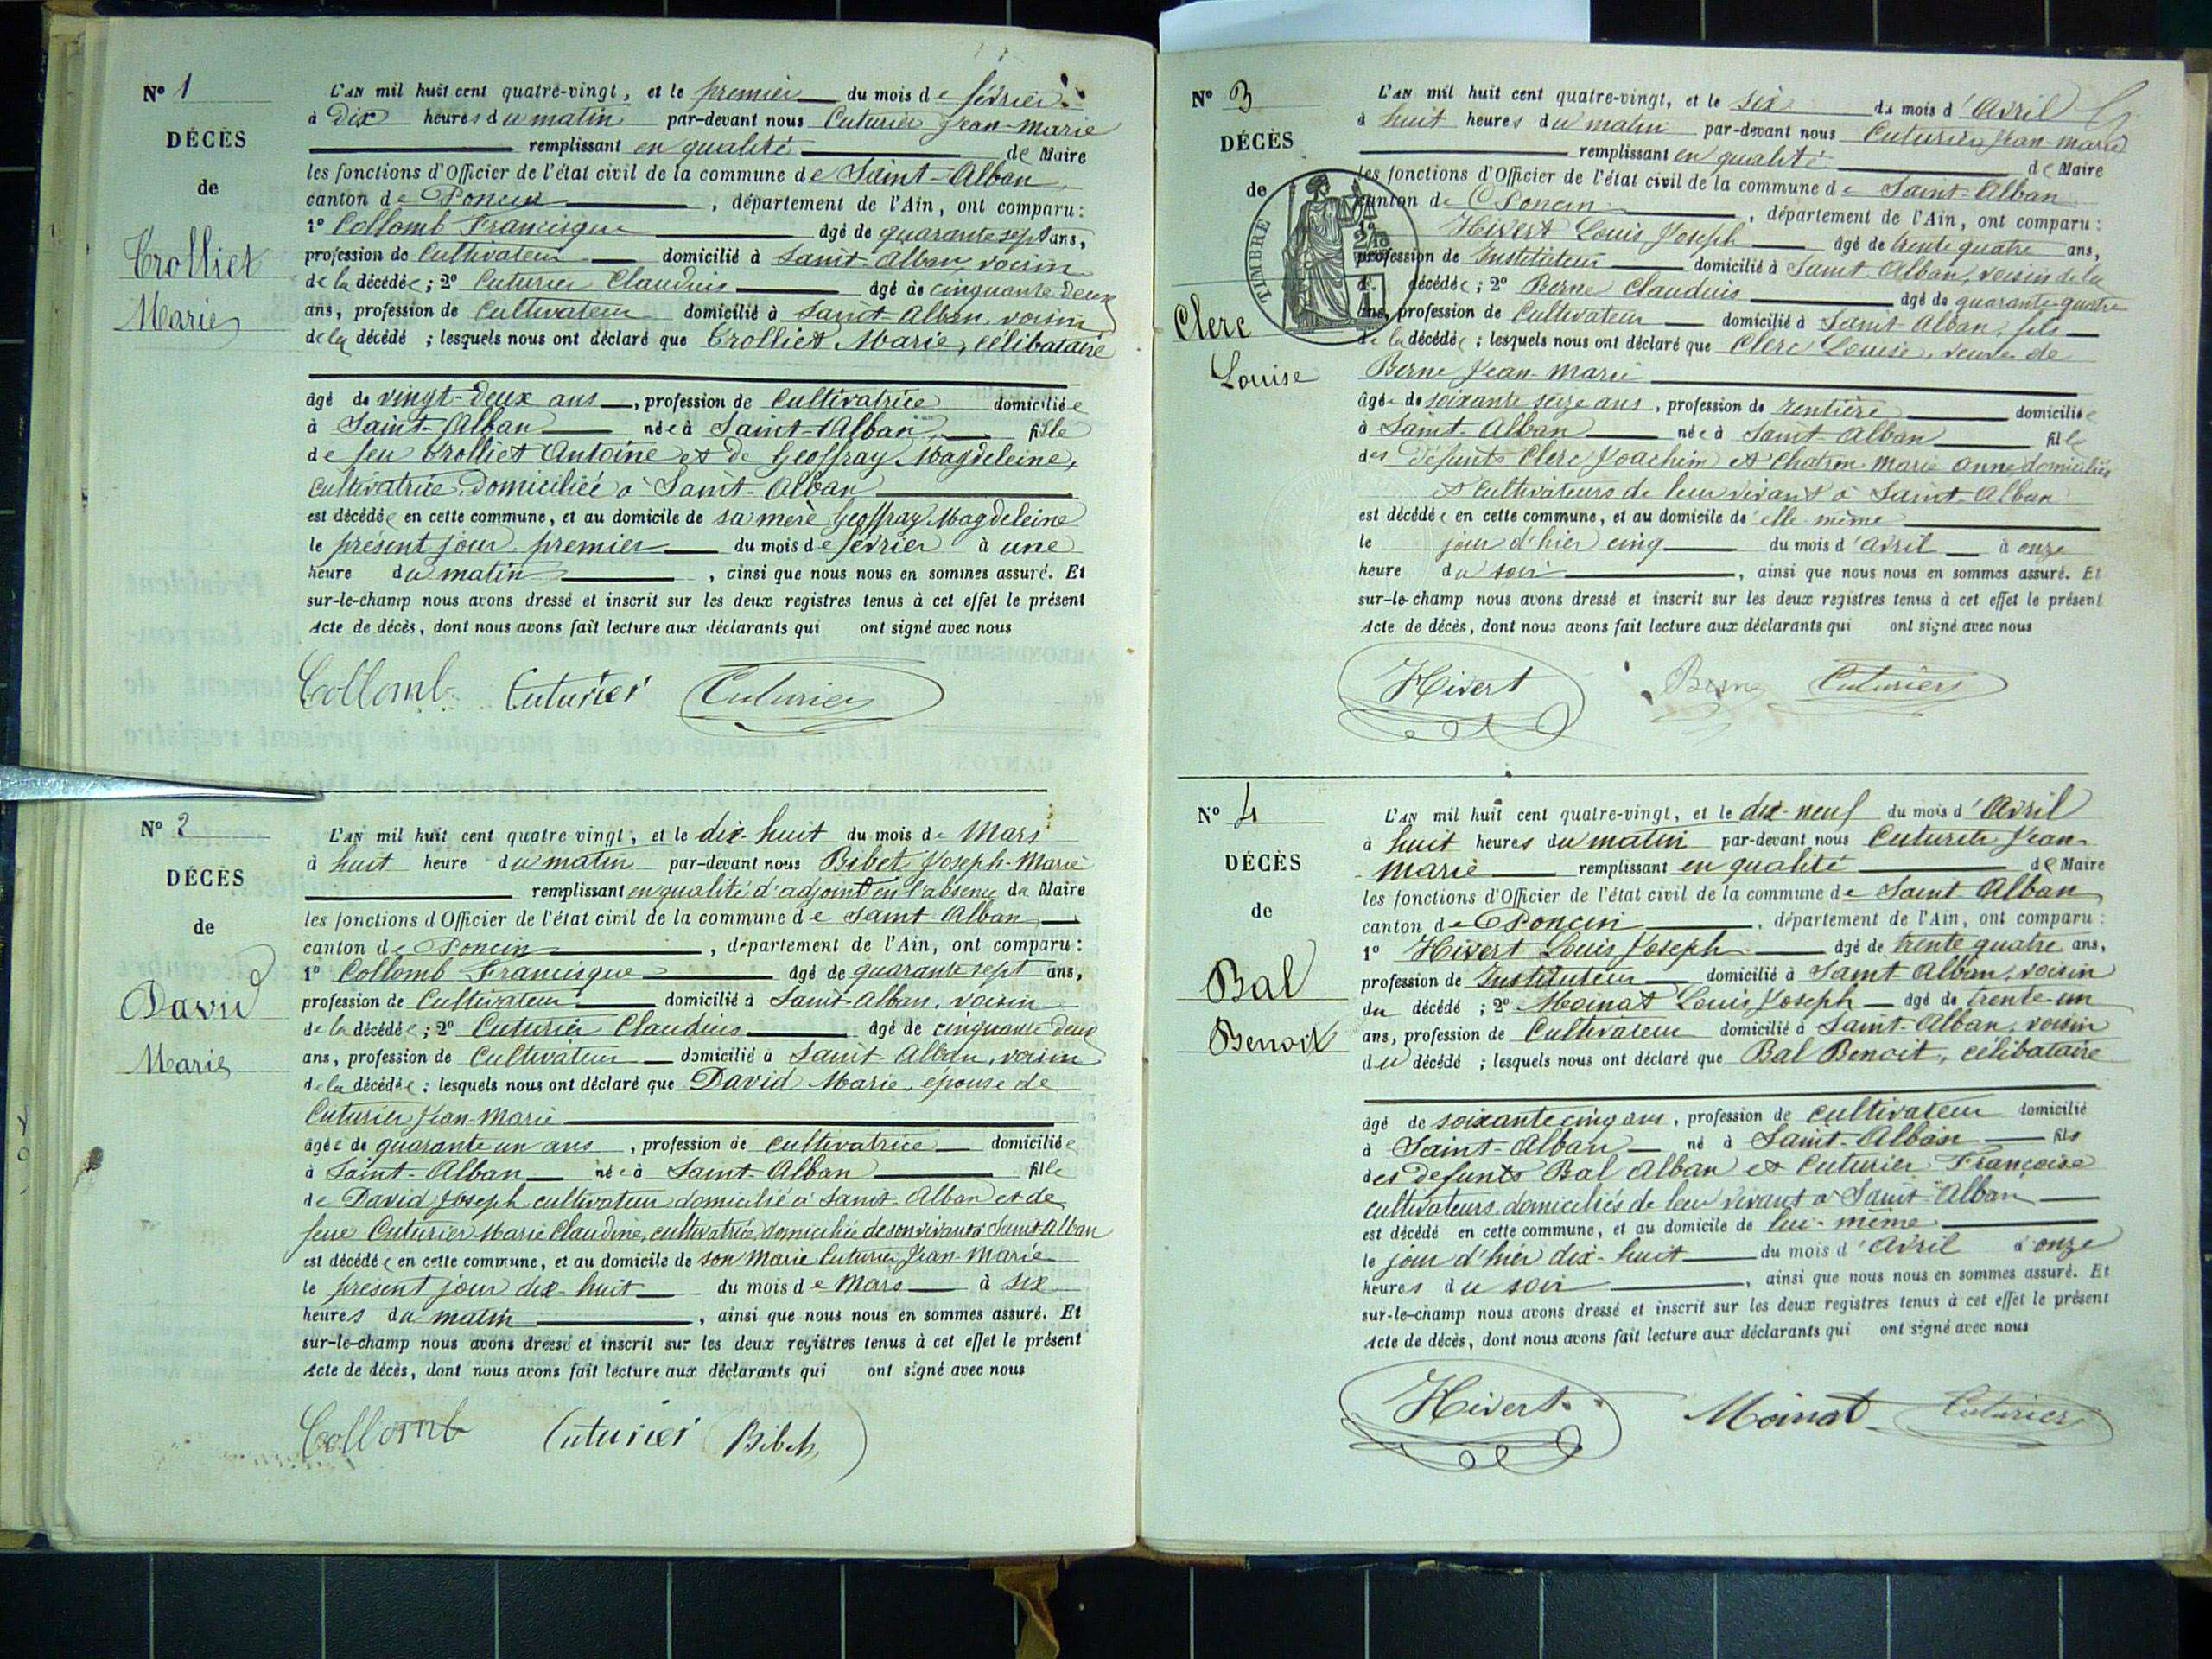 N° 1
DÉCÈS
de
Trolliet
Marie
L'AN mil huit cent quatre-vingt, et le premier du mois de février
à Dix heures du matin par-devant nous Cuturier Jean-Marie
remplissant en qualité de Maire
les fonctions d'Officier de l'état civil de la commune de Saint-Alban
canton de Poncin, département de l'Ain, ont comparu :
1° Collomb Francisque âgé de quarante sept ans,
profession de Cultivateur domicilié à Saint-Alban, voisin
de la décédée ; 2° Cuturier Claudius âgé de cinquante deux
ans, profession de Cultivateur domicilié à Saint-Alban, voisin
de la décédé ; lesquels nous ont déclaré que Trolliet Marie, célibataire
âgé de vingt-deux ans, profession de Cultivatrice domiciliée
à Saint-Alban née à Saint-Alban, fille
de feu Trolliet Antoine et de Geoffray Magdeleine,
cultivatrice domiciliée à Saint-Alban
est décédée en cette commune, et au domicile de sa mère Geoffray Magdeleine
le présent jour premier du mois de février à une
heure du matin, ainsi que nous nous en sommes assuré. Et
sur-le-champ nous avons dressé et inscrit sur les deux registres tenus à cet effet le présent
Acte de décès, dont nous avons fait lecture aux déclarants qui ont signé avec nous
Collomb Cuturier Cuturier
N° 2
DÉCÈS
de
David
Marie
L'AN mil huit cent quatre-vingt, et le dix-huit du mois de Mars
à huit heure du matin par-devant nous Bibet Joseph-Marie
remplissant en qualité d'adjoint en l'absence du Maire
les fonctions d'Officier de l'état civil de la commune de Saint-Alban
canton de Poncin, département de l'Ain, ont comparu :
1° Collomb Francisque âgé de quarante sept ans,
profession de Cultivateur domicilié à Saint-Alban, voisin
de la décédée ; 2° Cuturier Claudius âgé de cinquante deux
ans, profession de Cultivateur domicilié à Saint-Alban, voisin
de la décédée ; lesquels nous ont déclaré que David Marie, épouse de
Cuturier Jean-Marie
âgée de quarante un ans, profession de cultivatrice domiciliée
à Saint-Alban née à Saint-Alban fille
de David Joseph cultivateur domicilié à Saint-Alban et de
feue Cuturier Marie Claudine, cultivatrice domiciliée de son vivant à Saint-Alban
est décédée en cette commune, et au domicile de son Marie Cuturier Jean-Marie
le présent jour dix-huit du mois de Mars à six
heures du matin, ainsi que nous nous en sommes assuré. Et
sur-le-champ nous avons dressé et inscrit sur les deux registres tenus à cet effet le présent
Acte de décès, dont nous avons fait lecture aux déclarants qui ont signé avec nous
Collomb Cuturier Bibet
N° 3
DÉCÈS
de
TIMBRE
Clerc
Louise
L'AN mil huit cent quatre-vingt, et le six du mois d'Avril
à huit heures du matin par-devant nous Cuturier Jean-Marie
remplissant en qualité de Maire
les fonctions d'Officier de l'état civil de la commune de Saint-Alban
canton de Poncin, département de l'Ain, ont comparu :
1° Hivert Louis Joseph âgé de trente quatre ans,
profession de Instituteur domicilié à Saint-Alban, voisin de la
décédée ; 2° Berne Claudius âgé de quarante-quatre
ans, profession de Cultivateur domicilié à Saint-Alban, fils
de la décédée ; lesquels nous ont déclaré que Clerc Louise, veuve de
Berne Jean-Marie
âgée de soixante seize ans, profession de rentière domiciliée
à Saint-Alban née à Saint-Alban fille
des défunts Clerc Joachim et Chatron Marie Anne domiciliés
et cultivateurs de leur vivant à Saint-Alban
est décédée en cette commune, et au domicile de elle même
le jour d'hier cinq du mois d'Avril à onze
heure du soir, ainsi que nous nous en sommes assuré. Et
sur-le-champ nous avons dressé et inscrit sur les deux registres tenus à cet effet le présent
Acte de décès, dont nous avons fait lecture aux déclarants qui ont signé avec nous
Hivert Berne Cuturier
N° 4
DÉCÈS
de
Bal
Benoit
L'AN mil huit cent quatre-vingt, et le dix-neuf du mois d'Avril
à huit heures du matin par-devant nous Cuturier Jean-
Marie remplissant en qualité de Maire
les fonctions d'Officier de l'état civil de la commune de Saint Alban
canton de Poncin, département de l'Ain, ont comparu :
1° Hivert Louis Joseph âgé de trente quatre ans,
profession de Instituteur domicilié à Saint-Alban, voisin
du décédé ; 2° Moinat Louis Joseph âgé de trente-un
ans, profession de Cultivateur domicilié à Saint-Alban, voisin
du décédé ; lesquels nous ont déclaré que Bal Benoit, célibataire
âgé de soixante cinq ans, profession de cultivateur domicilié
à Saint-Alban né à Saint-Alban fils
des defunts Bal Alban et Cuturier Françoise
cultivateurs domiciliés de leur vivant à Saint-Alban
est décédé en cette commune, et au domicile de lui-même
le jour d'hier dix-huit du mois d'Avril à onze
heures du soir, ainsi que nous nous en sommes assuré. Et
sur-le-champ nous avons dressé et inscrit sur les deux registres tenus à cet effet le présent
Acte de décès, dont nous avons fait lecture aux déclarants qui ont signé avec nous
Hivert Moinat Cuturier